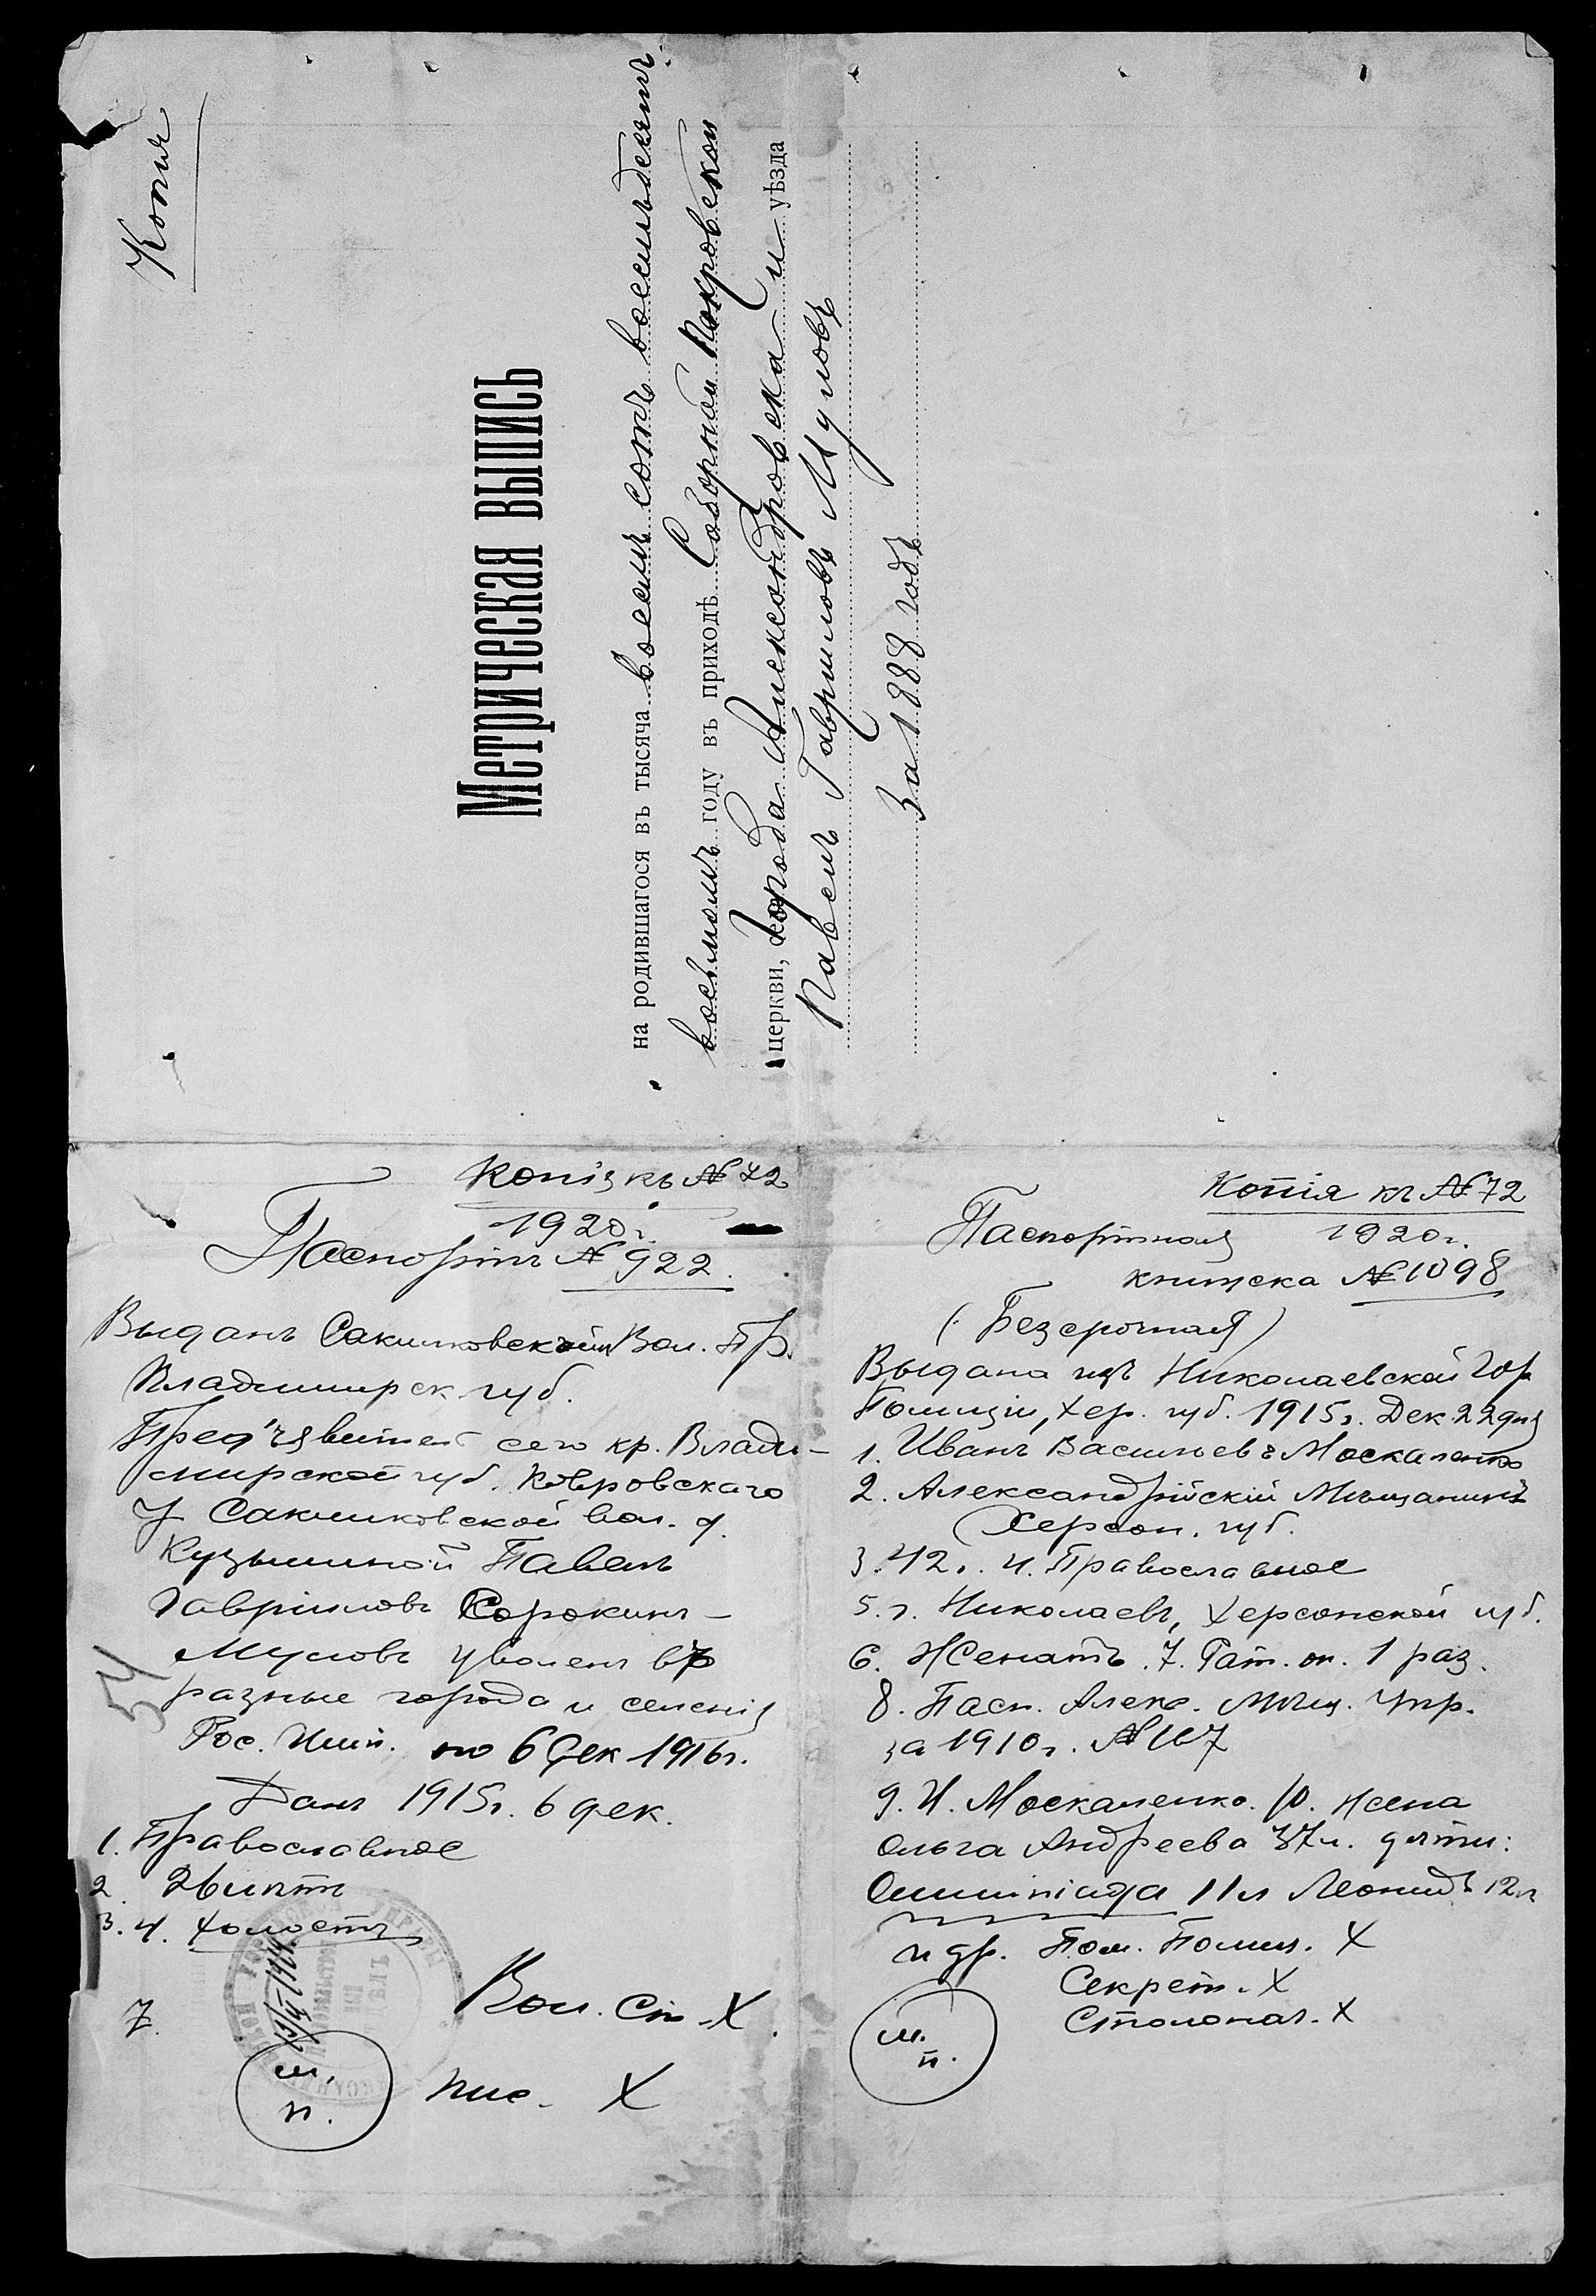 Копия
Метрическая выпись
на родившагося въ тысяча восемь сотъ восемьдесятъ
восьмомъ году въ приходѣ Соборной Покровской
церкви, города Александровска и уѣзда
Павелъ Гавриловъ Муловъ
За 1888 годъ
Копія къ № 72
1920 г.
Паспортъ № 922.
Выданъ Сакулковскимъ Вол. Пр.
Владимирск. губ.
Предъявитель сего кр. Влади-
мирской губ. Ковровскаго
у Сакулковской вол. д.
Кузьминой Павелъ
Гавриловъ Сорокинъ-
Муловъ уволенъ въ
разные города и селенія
Рос. Имп. по 6 Дек 1916 г.
Данъ 1915 г. 6 дек.
1. Православное
2. 26 лѣтъ
3. 4. холостъ
7.
Вол. Ст. Х.
м.
п.
пис. Х
54
Копія къ № 72
Паспортная 1920 г.
книжска № 1098
(Безсрочная)
Выдана изъ Николаевской Гор
Полиціи, Хер. губ. 1915 г. Дек. 22 дня
1. Иванъ Васильевъ Москаленко
2. Александрійскій Мѣщанинъ
Херсон. губ.
3. 42 г. 4. Православное
5. г. Николаевъ, Херсонской губ.
6. Женатъ. 7. Рат. оп. 1 раз.
8. Пасп. Алекс. Мѣщ. Упр.
за 1910 г. № 167
9. И. Москаленко. 10. жена
Ольга Андреева 37 л. дѣти:
Олимпіада 11 л Леонидъ 12 л
и др. Пом. Полиц. Х
Секрет. Х
Столонач. Х
м.
п.